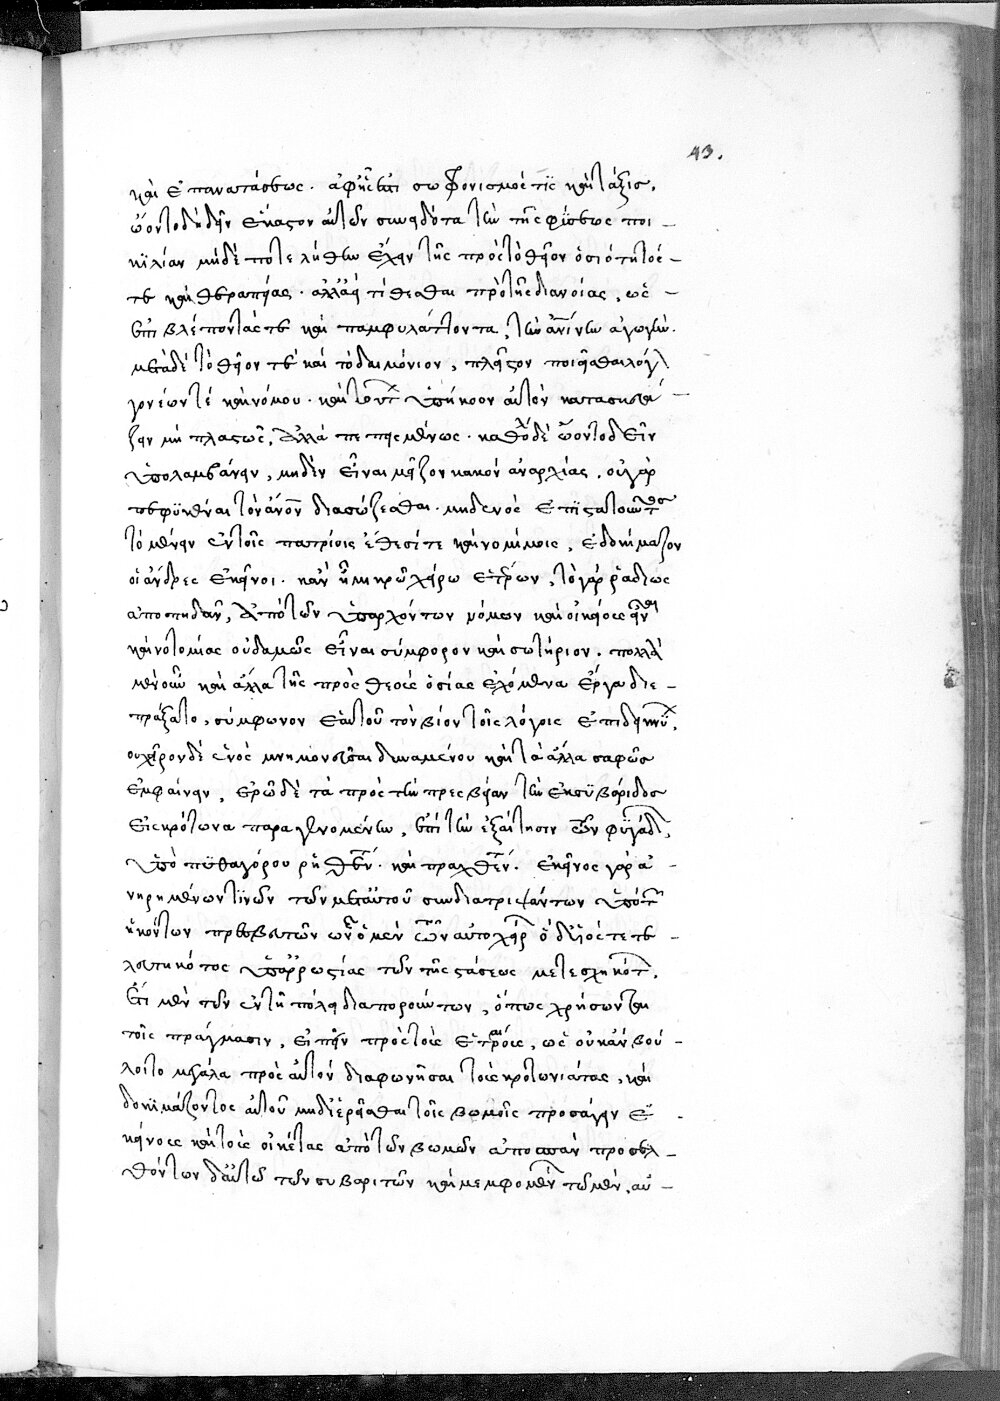 43.
καὶ ἐπαναστάσεως. ἀφ' ἧς ἐστι σωφρονισμός τις καὶ τάξις.
ᾤοντο δὴ δεῖν ἕκαστον αὐτῶν συνειδότα τὴν τῆς φύσεως ποι-
κιλίαν μηδέποτε λήθην ἔχειν τῆς πρὸς τὸ θεῖον ὁσιότητός
τε καὶ θεραπείας. ἀλλ' ἀεὶ τίθεσθαι πρὸ τῆς διανοίας, ὡς
ἐπιβλέποντάς τε καὶ παραφυλάττοντα, τὴν ἀνίνην ἀγωγήν.
μετὰ δὲ τὸ θεῖον τε καὶ τὸ δαιμόνιον, πλεῖστον ποιεῖσθαι λόγ
γονέων τέ καὶ νόμου. καὶ τούτ ὑπήκοον αὐτὸν κατασκευά-
ζειν μὴ πλαστῶς, ἀλλὰ πεπεισμένως. καθόλου δὲ ᾤοντο δεῖν
ὑπολαμβάνειν, μηδὲν εἶναι μεῖζον κακὸν ἀναρχίας. οὐ γὰρ
πεφυκέναι τὸν ἄνον διασώζεσθαι. μηδενὸς ἐπιστατοῦντος
τὸ μένειν ἐν τοῖς πατρίοις ἔθεσί τε καὶ νομίμοις, ἐδοκίμαζον
οἱ ἄνδρες ἐκεῖνοι. κἂν ᾖ μικρῷ χείρω ἑτέρων, τὸ γὰρ ῥαδίως
ἀποπηδᾶν, ἀπὸ τῶν ὑπαρχόντων νόμων καὶ οἰκείους εἶναι
καινοτομίας οὐδαμῶς εἶναι σύμφορον καὶ σωτήριον. πολλὰ
μὲν οὖν καὶ ἄλλα τῆς πρὸς θεοὺς ὁσίας ἐχόμενα ἔργα διε-
πράξατο, σύμφωνον ἑαυτοῦ τὸν βίον τοῖς λόγοις ἐπιδεικνύ,
οὐ χεῖρον δὲ ἑνὸς μνημονεῦσαι δυναμένου καὶ τὰ ἄλλα σαφῶς
ἐμφαίνειν, ἐρῶ δὲ τὰ πρὸς τὴν πρεσβείαν τὴν ἐκ συβάριδος
εἰς κρότωνα παραγενομένην, ἐπὶ τὴν ἐξαίτησιν τῶν φυγάδ,
ὑπὸ πυθαγόρου ῥηθέν. καὶ πραχθέν. ἐκεῖνος γὰρ ἀ-
νῃρημένων τινῶν τῶν μετ' αὐτοῦ συνδιατριψάντων ὑπὸ τ
ἡκόντων πρεσβευτῶν ὧν ὁ μὲν τῶν αὐτοχείρ ὁ δὲ υἱός τετε-
λευτηκότος ὑπ' ἀρρωστίας τῶν τῆς στάσεως μετεσχηκότ.
ἔτι μὲν τῶν ἐν τῇ πόλει διαπορούντων, ὅπως χρήσωνται
τοῖς πράγμασιν, εἰπεῖν πρὸς τοὺς ἑταίρους, ὡς οὐκ ἂν βού-
λοιτο μεγάλα πρὸς αὑτὸν διαφωνῆσαι τοὺς κροτωνιάτας, καὶ
δοκιμάζοντος αὐτοῦ μηδ' ἱερεῖα τοῖς βωμοῖς προσάγειν ἐ-
κείνους καὶ τοὺς οἰκέτας ἀπὸ τῶν βωμῶν ἀποσπᾶν προσελ-
θόντων δ' αὐτῷ τῶν συβαριτῶν καὶ μεμφομέν τῷ μὲν, αὐ-